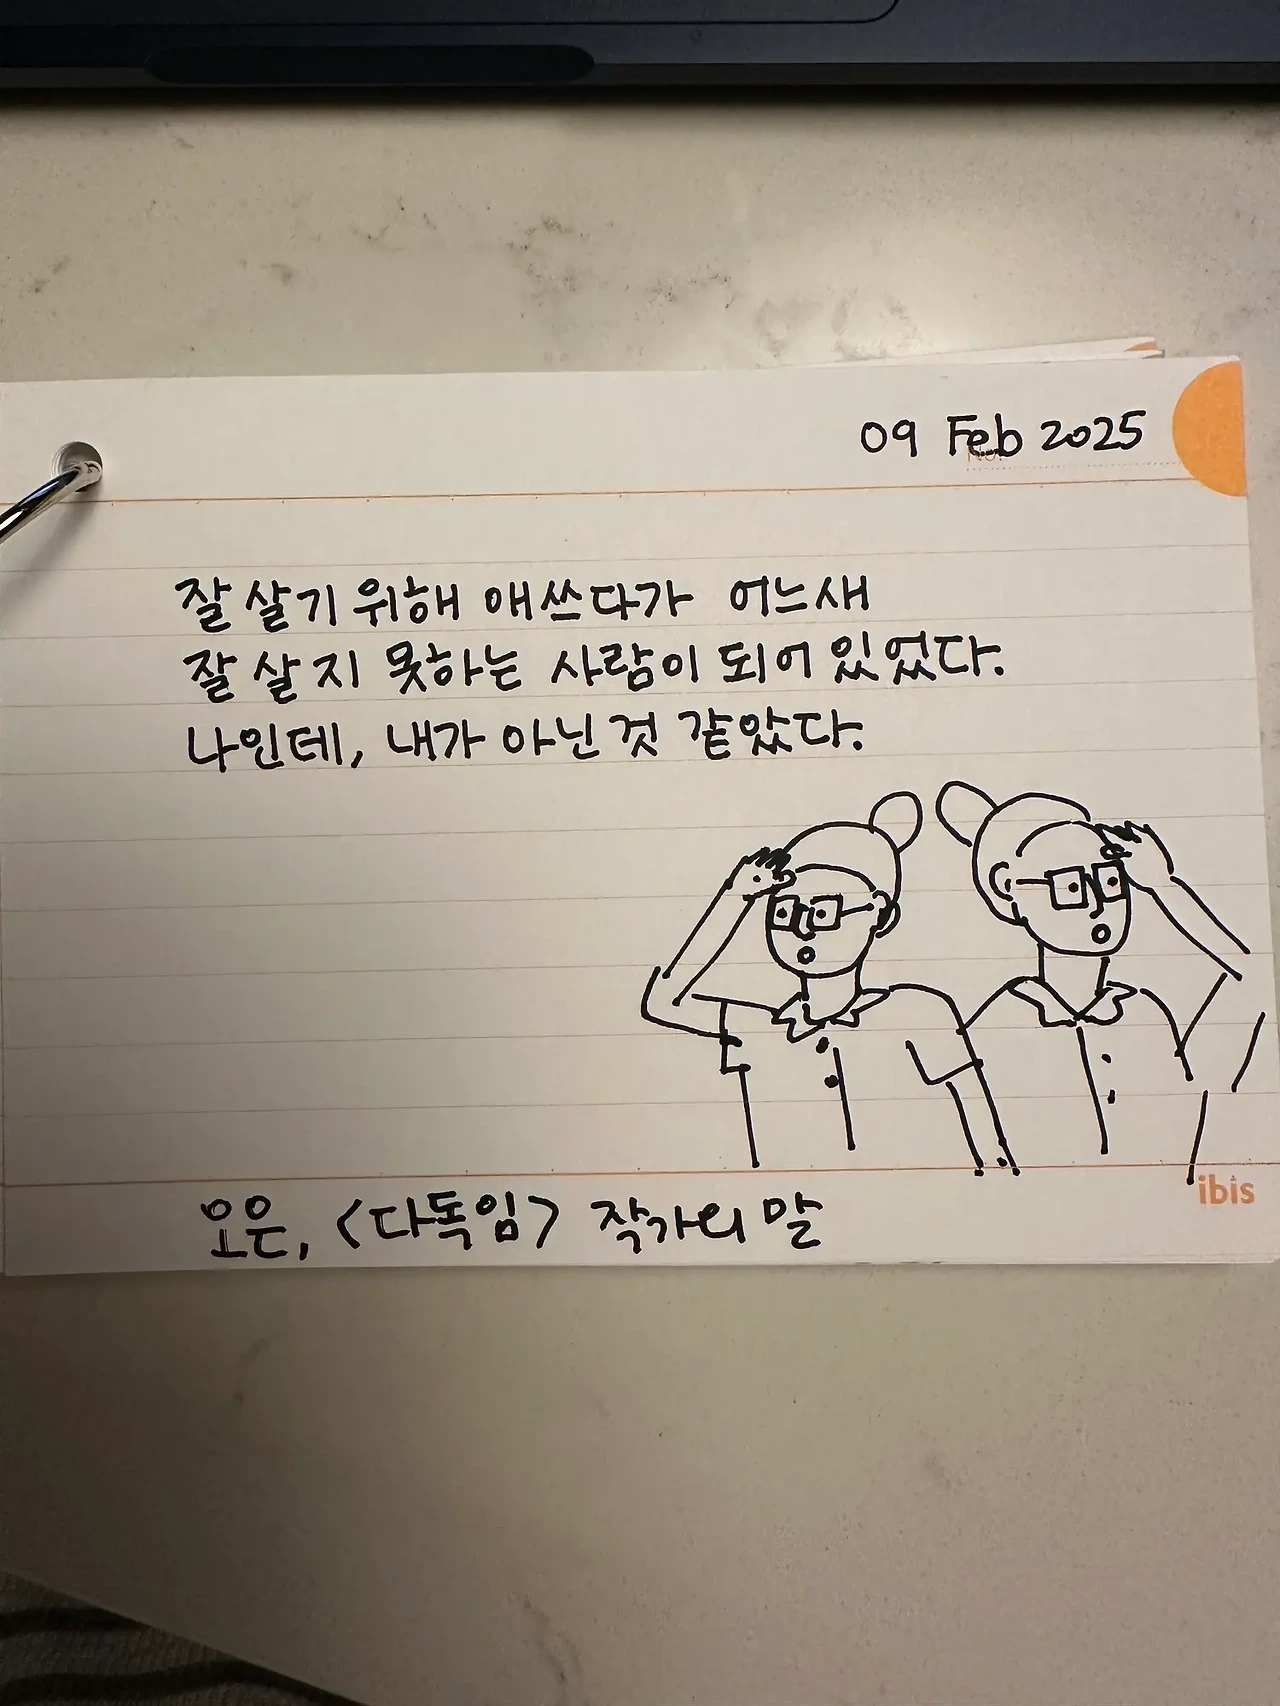 09 Feb 2025
잘 살기 위해 애쓰다가 어느새
잘 살지 못하는 사람이 되어 있었다.
나인데, 내가 아닌 것 같았다.
ibis
오은, <다독임> 작가의 말